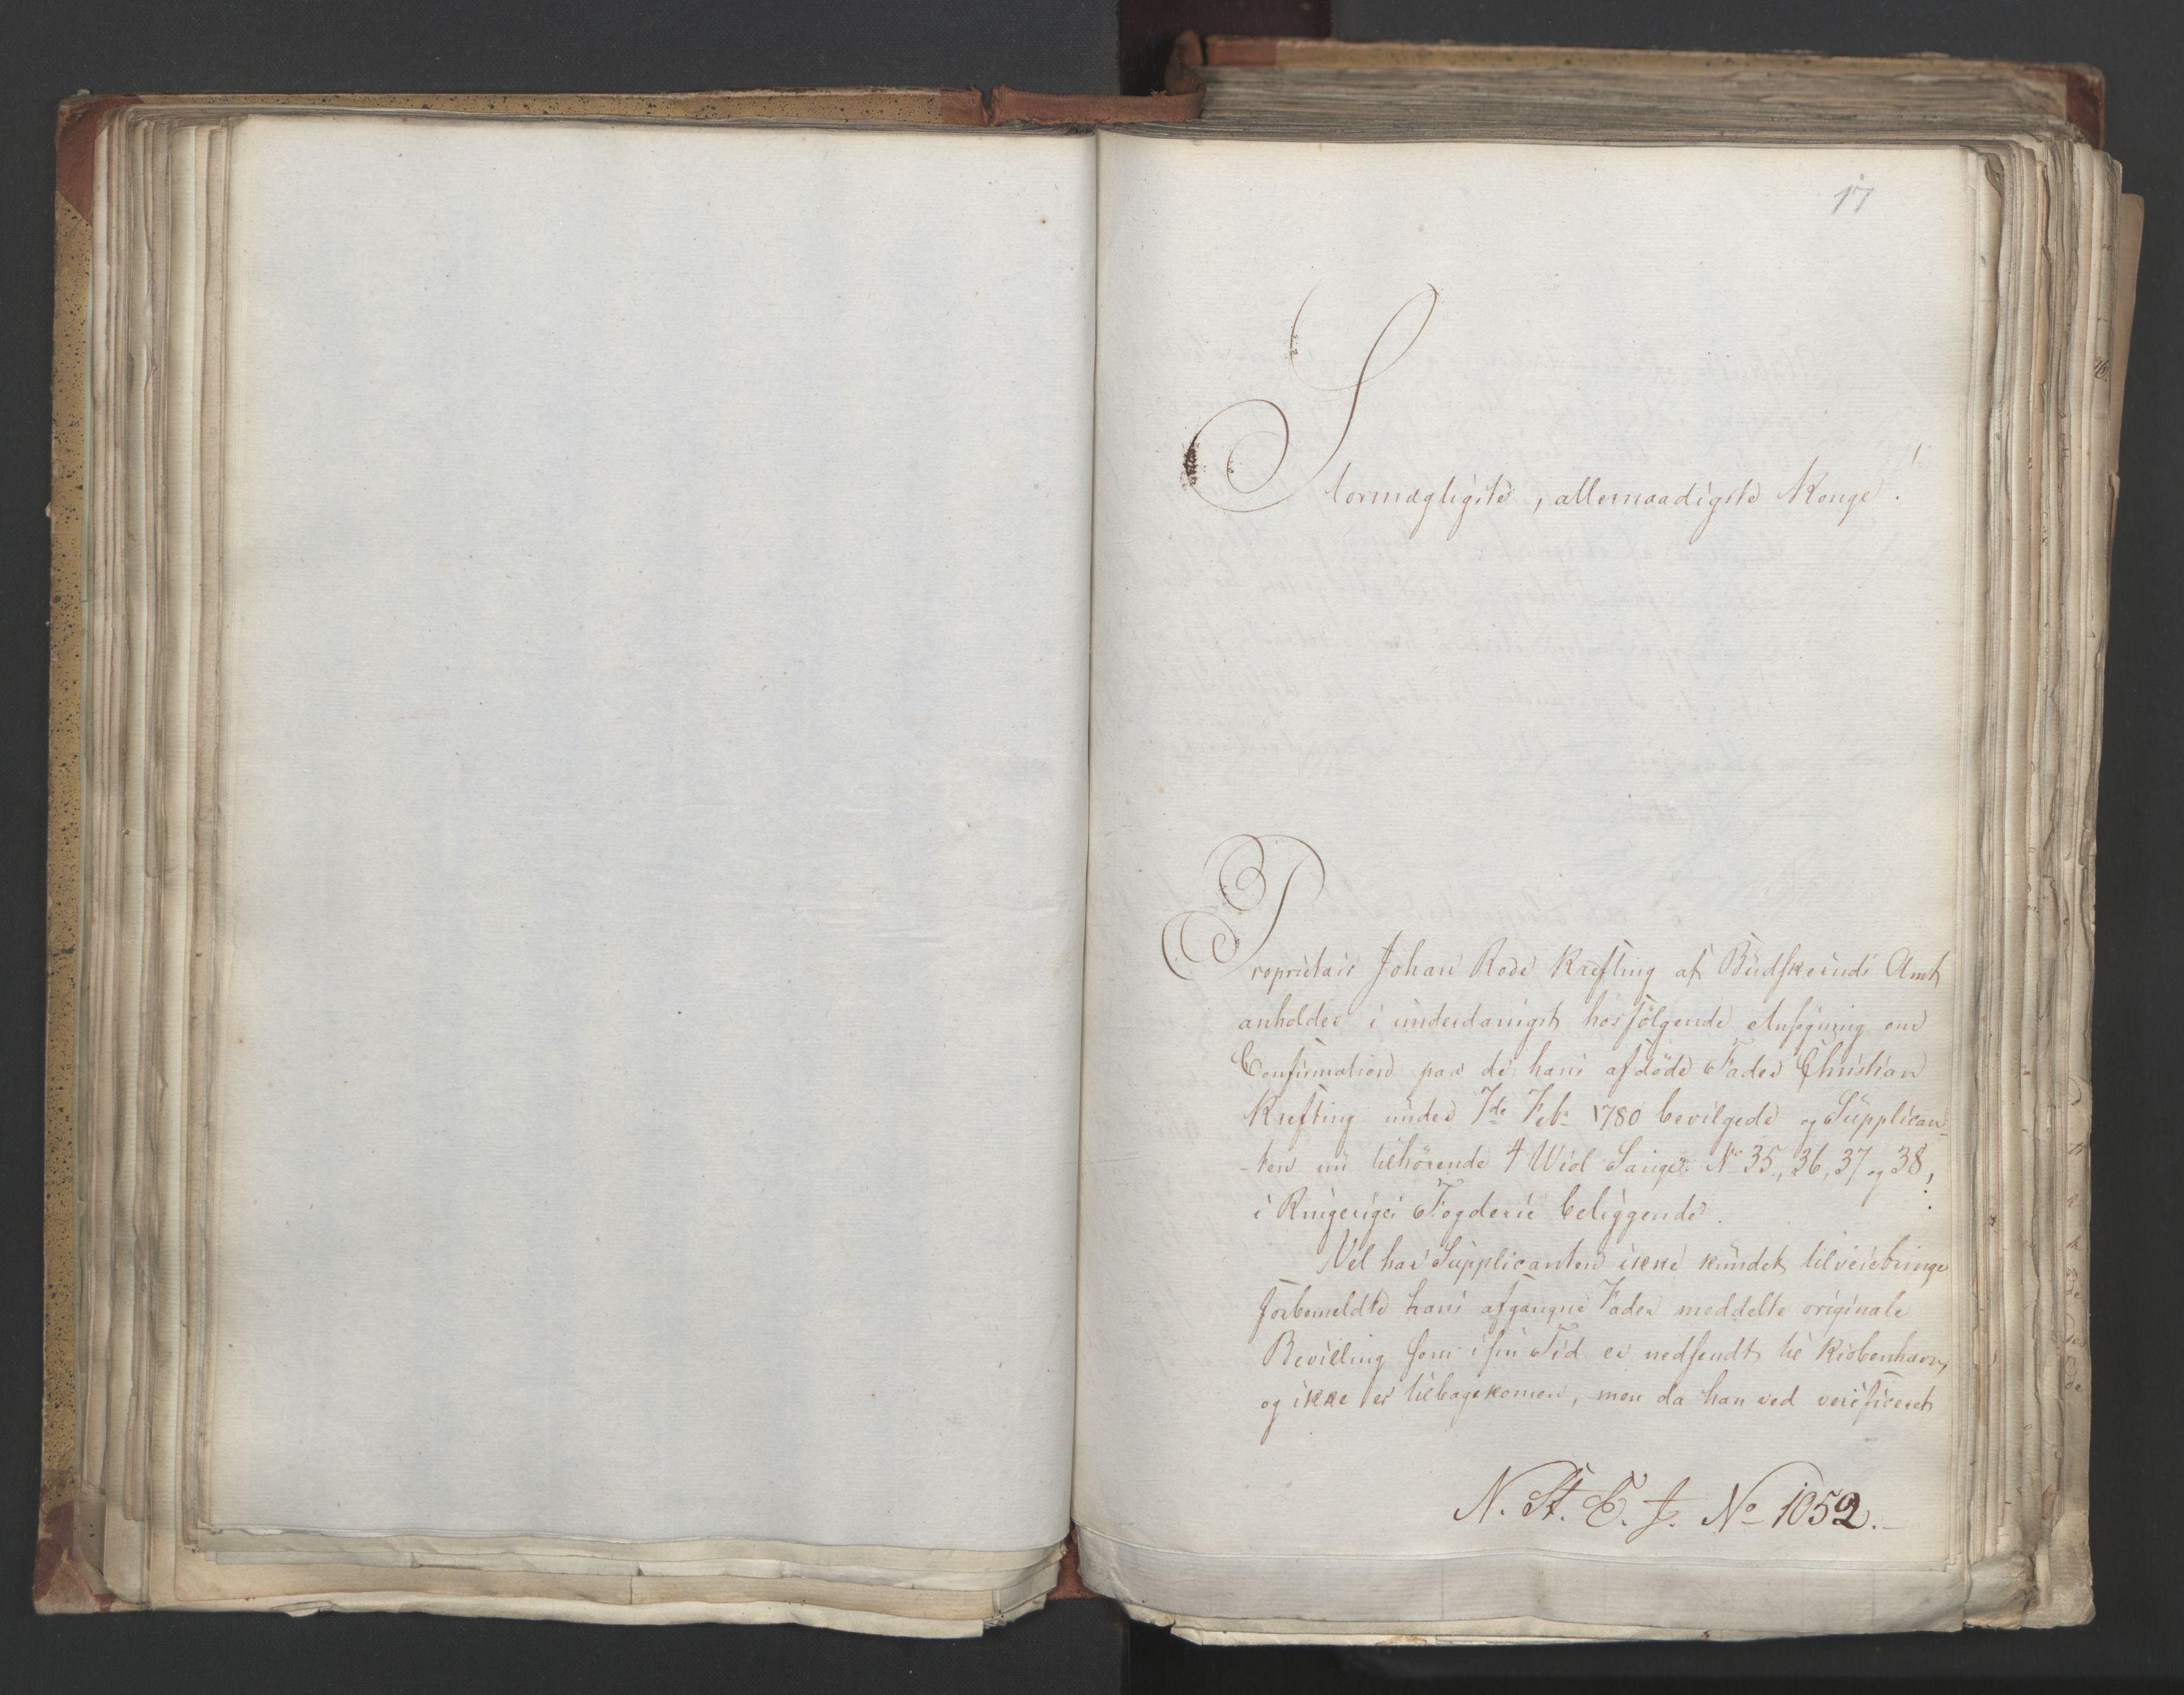 17
Stormægtigste, allernaadigste Konge!
Proprietair Johan Rode Krefting af Büdskeruds Amt
anholder i underdanigst hosfölgende Ansögning om
Confirmation paa de hans afdöde Fader Christian
Krefting under 7de Feb. 1780 bevilgede og Supplican-
-ten nu tilhörende 4 Sauge No 35, 36, 37 og 38,
i Ringeriges Fogderie beliggende.
Vel har Supplicanten ikke kundet tilveiebringe
forbemeldte hans afgangne Fader meddelte originale
Bevilling som i sin Tid er nedsendt til Kiöbenhavn,
og ikke er tilbagekomen, men da han ved verificeret
N. St. C. J. No 1052.-